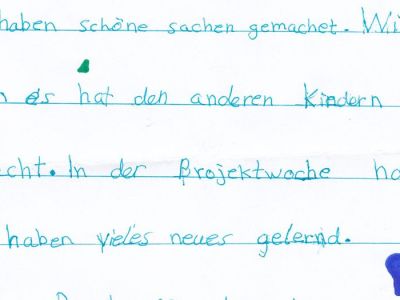 haben schöne sachen gemachet. Wi
es hat den anderen Kindern
cht. In der Projektwoche ha
haben vieles neues gelernd.